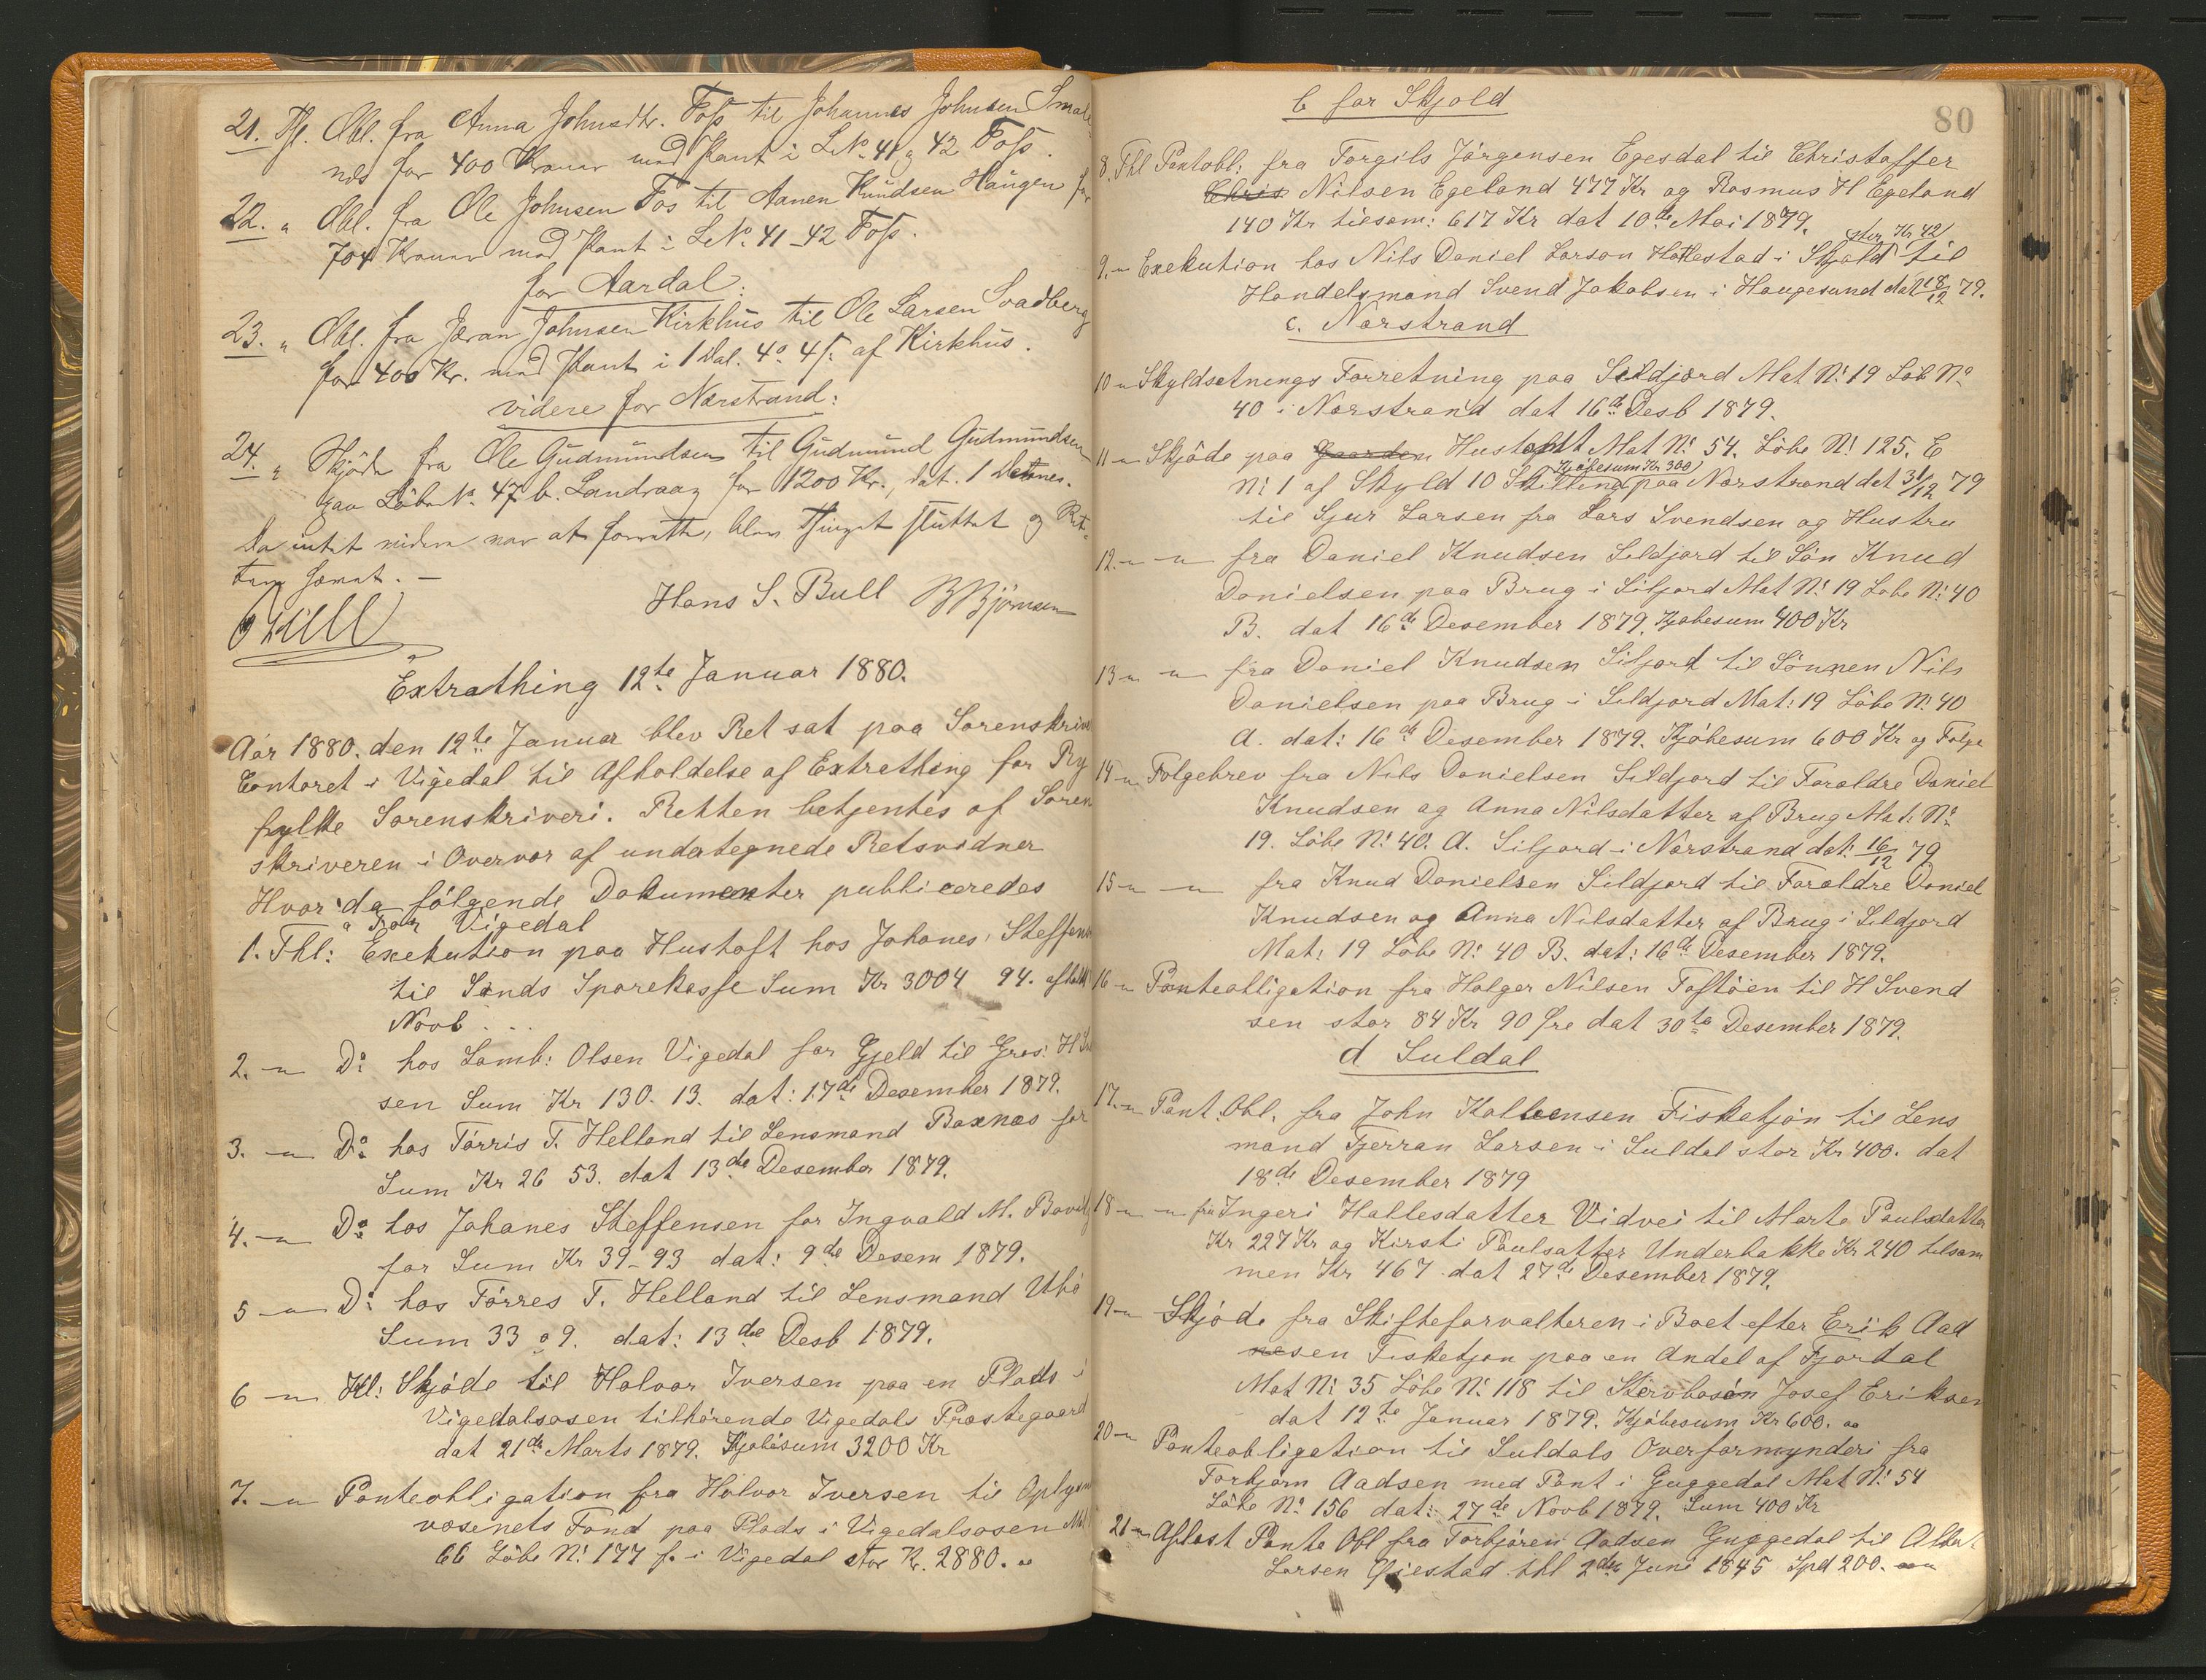 21. Th. Obl. fra Anna Johnsdtr. Foss til Johannes Johnsen Smale-
nes for 400 Kroner med Pant i LN° 41 & 42 Foss.
22. " Obl. fra Ole Johnsen Fos til Aanen Knudsen Haugen for
704 Kroner med Pant i LN° 41-42 Foss.
for Aardal:
23. " Obl. fra Jøran Johnsen Kirkhus til Ole Larsen Svadberg
for 400 Kr. med Pant i 1 Dal. 4° 4 f. af Kirkhus.
videre for Nærstrand:
24. " Skjøde fra Ole Gudmundsen til Gudmund Gudmundsen
paa Løbe N° 47 b. Landraag for 1200 Kr., dat. 1
Da intet videre var at forrette, blev Thinget sluttet og Ret-
ten hævet. —
Hans S. Bull BBjørnsen
Extrathing 12te Januar 1880.
Aar 1880. den 12te Januar blev Ret sat paa Sorenskriver
Contoret i Vigedal til Afholdelse af Extrathing for Ry
fylke Sorenskriveri. Retten betjentes af Soren
skriveren i Overvær af undertegnede Retsvidner
Hvor da følgende Dokumenter publiceredes
a For Vigedal
1. Thl: Exekution paa Hustoft hos Johanes Steffens
til Sands Sparekasse Sum Kr 3004 94. afholdt
Novb. . .
2. -"- D° hos Lamb: Olsen Vigedal for Gjeld til Gros: H Sv
sen Sum Kr 130. 13. dat: 17de Desember 1879.
3. -"- D° hos Tørris T. Helland til Lensmand Baxnæs for
Sum Kr 26 53. dat 13de Desember 1879.
4. -"- D° hos Johanes Steffensen for Ingvald M. Bovits
for Sum Kr 39-93 dat: 9de Desem 1879.
5 -"- D° hos Tørres T. Helland til Lensmand Ubø
Sum 33 o 9. dat: 13de Desb 1879.
6 -"- Kl: Skjøde til Halvor Iversen paa en Plads i
Vigedalsosen tilhørende Vigedals Præstegaard
dat 21de Marts 1879. Kjøbesum 3200 Kr
7. -"- Panteobligation fra Halvor Iversen til Oplysn
væsenets Fond paa Plads i Vigedalsosen Mat
66 Løbe N° 177 f. i Vigedal stor Kr. 2880. "
80
b for Skjold
8. Thl Pantobl: fra Torgils Jørgensen Egesdal til Christoffer
Chris Nilsen Egeland 477 Kr og Rasmus H Egeland
140 Kr tilsam: 617 Kr dat 10de Mai 1879.
9. -"- Exekution hos Nils Daniel Larson Hattestad i Skjold stor Kr 42 til
Handelsmand Svend Jakobsen i Haugesund dat 18/12 79.
c. Narstrand
10 -"- Skyldsetnings Forretning paa Sildjord Mat N° 19 Løb N°
40 i Narstrand dat 16de Desb 1879.
11 -"- Skjøde paa Gaarden Hustoft Mat N° 54. Løbe N° 125. E
N° 1 af Skyld 10 Skilling Kjøbesum Kr 300 paa Narstrand dat 31/12 79
til Sjur Larsen fra Lars Svendsen og Hustru
12. -"- -"- fra Daniel Knudsen Sildjord til Søn Knud
Danielsen paa Brug i Siljord Mat N° 19 Løbe N° 40
B. dat 16de Desember 1879. Kjøbesum 400 Kr
13 -"- -"- fra Daniel Knudsen Siljord til Sønnen Nils
Danielsen paa Brug i Sildjord Mat: 19 Løbe N° 40
A. dat: 16de Desember 1879. Kjøbesum 600 Kr og Følge
14 -"- Følgebrev fra Nils Danielsen Sildjord til Foraldre Daniel
Knudsen og Anna Nilsdatter af Brug Mat: N°
19. Løbe N° 40. A. Siljord i Narstrand dat: 16/12 79
15 -"- -"- fra Knud Danielsen Sildjord til Foraldre Daniel
Knudsen og Anna Nilsdatter af Brug i Sildjord
Mat: 19 Løbe N° 40 B. dat: 16de Desember 1879.
16 -"- Panteobligation fra Holger Nilsen Toftøen til H Svend
sen stor 84 Kr 90 Øre dat 30te Desember 1879.
d Suldal
17. -"- Pant. Obl. fra John Kolbensen Fisketjøn til Lens
mand Fjerran Larsen i Suldal stor Kr 400. dat
18de Desember 1879
18 -"- -"- fra Ingeri Hallesdatter Vidvei til Marta Paulsdatter
Kr 227 Kr og Kirsti Paulsatter Underbakke Kr 240 tilsam
men Kr 467 dat 27de Desember 1879.
19 -"- Skjøde fra Skifteforvalteren i Boet efter Erik Aad
nesen Fisketjøn paa en Andel af Fjordal
Mat N° 35 Løbe N° 118 til Josef Eriksen
dat 12te Januar 1879. Kjøbesum Kr 600. oo
20 -"- Panteobligation til Suldals Overformynderi fra
Torbjørn Aadsen med Pant i Guggedal Mat N° 54
Løbe N° 156 dat: 27de Novb 1879. Sum 400 Kr
21 -"- Aflæst Pante Obl fra Torbjøren Aadsen Guggedal til Albert
Larsen Gjestad thl 2den Juni 1845 Spd 200.